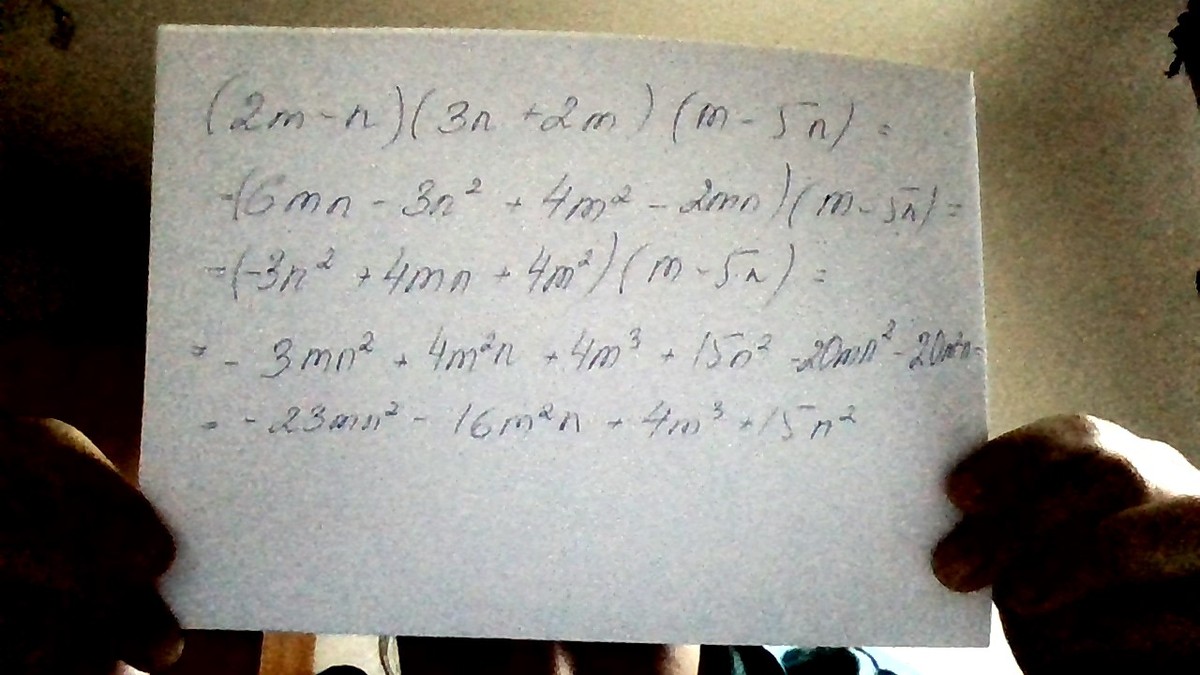 (2m - n)(3n + 2m)(m - 5n) =
=(6mn - 3n² + 4m² - 2mn)(m - 5n) =
=(-3n² + 4mn + 4m²)(m - 5n) =
= - 3mn² + 4m²n + 4m³ + 15n² - 20mn² - 20m²n =
= - 23mn² - 16m²n + 4m³ + 15n²